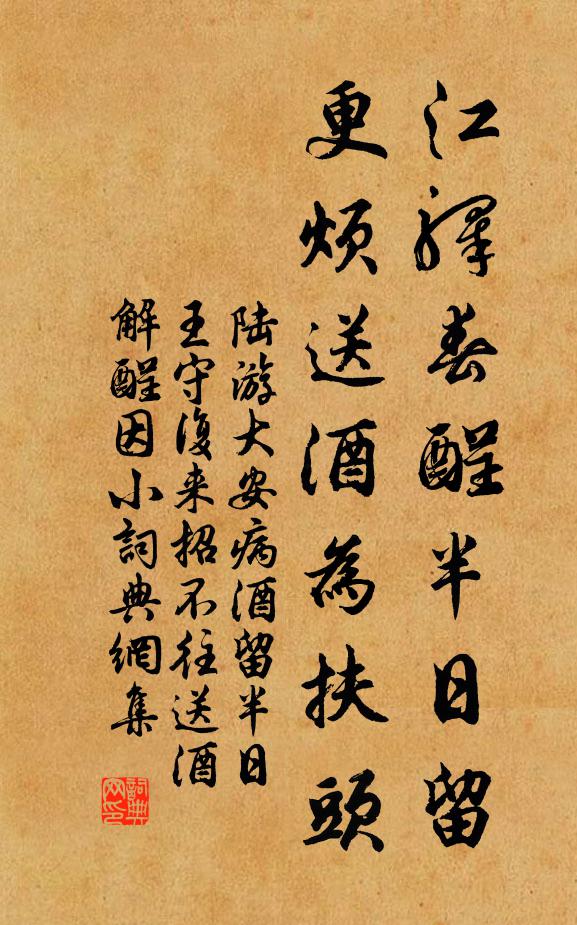 江驛春酲半日留
更煩送酒為扶頭
陆游大安病酒留半日
王守復来招不往送酒
解酲因小詞典網集
詞典网印